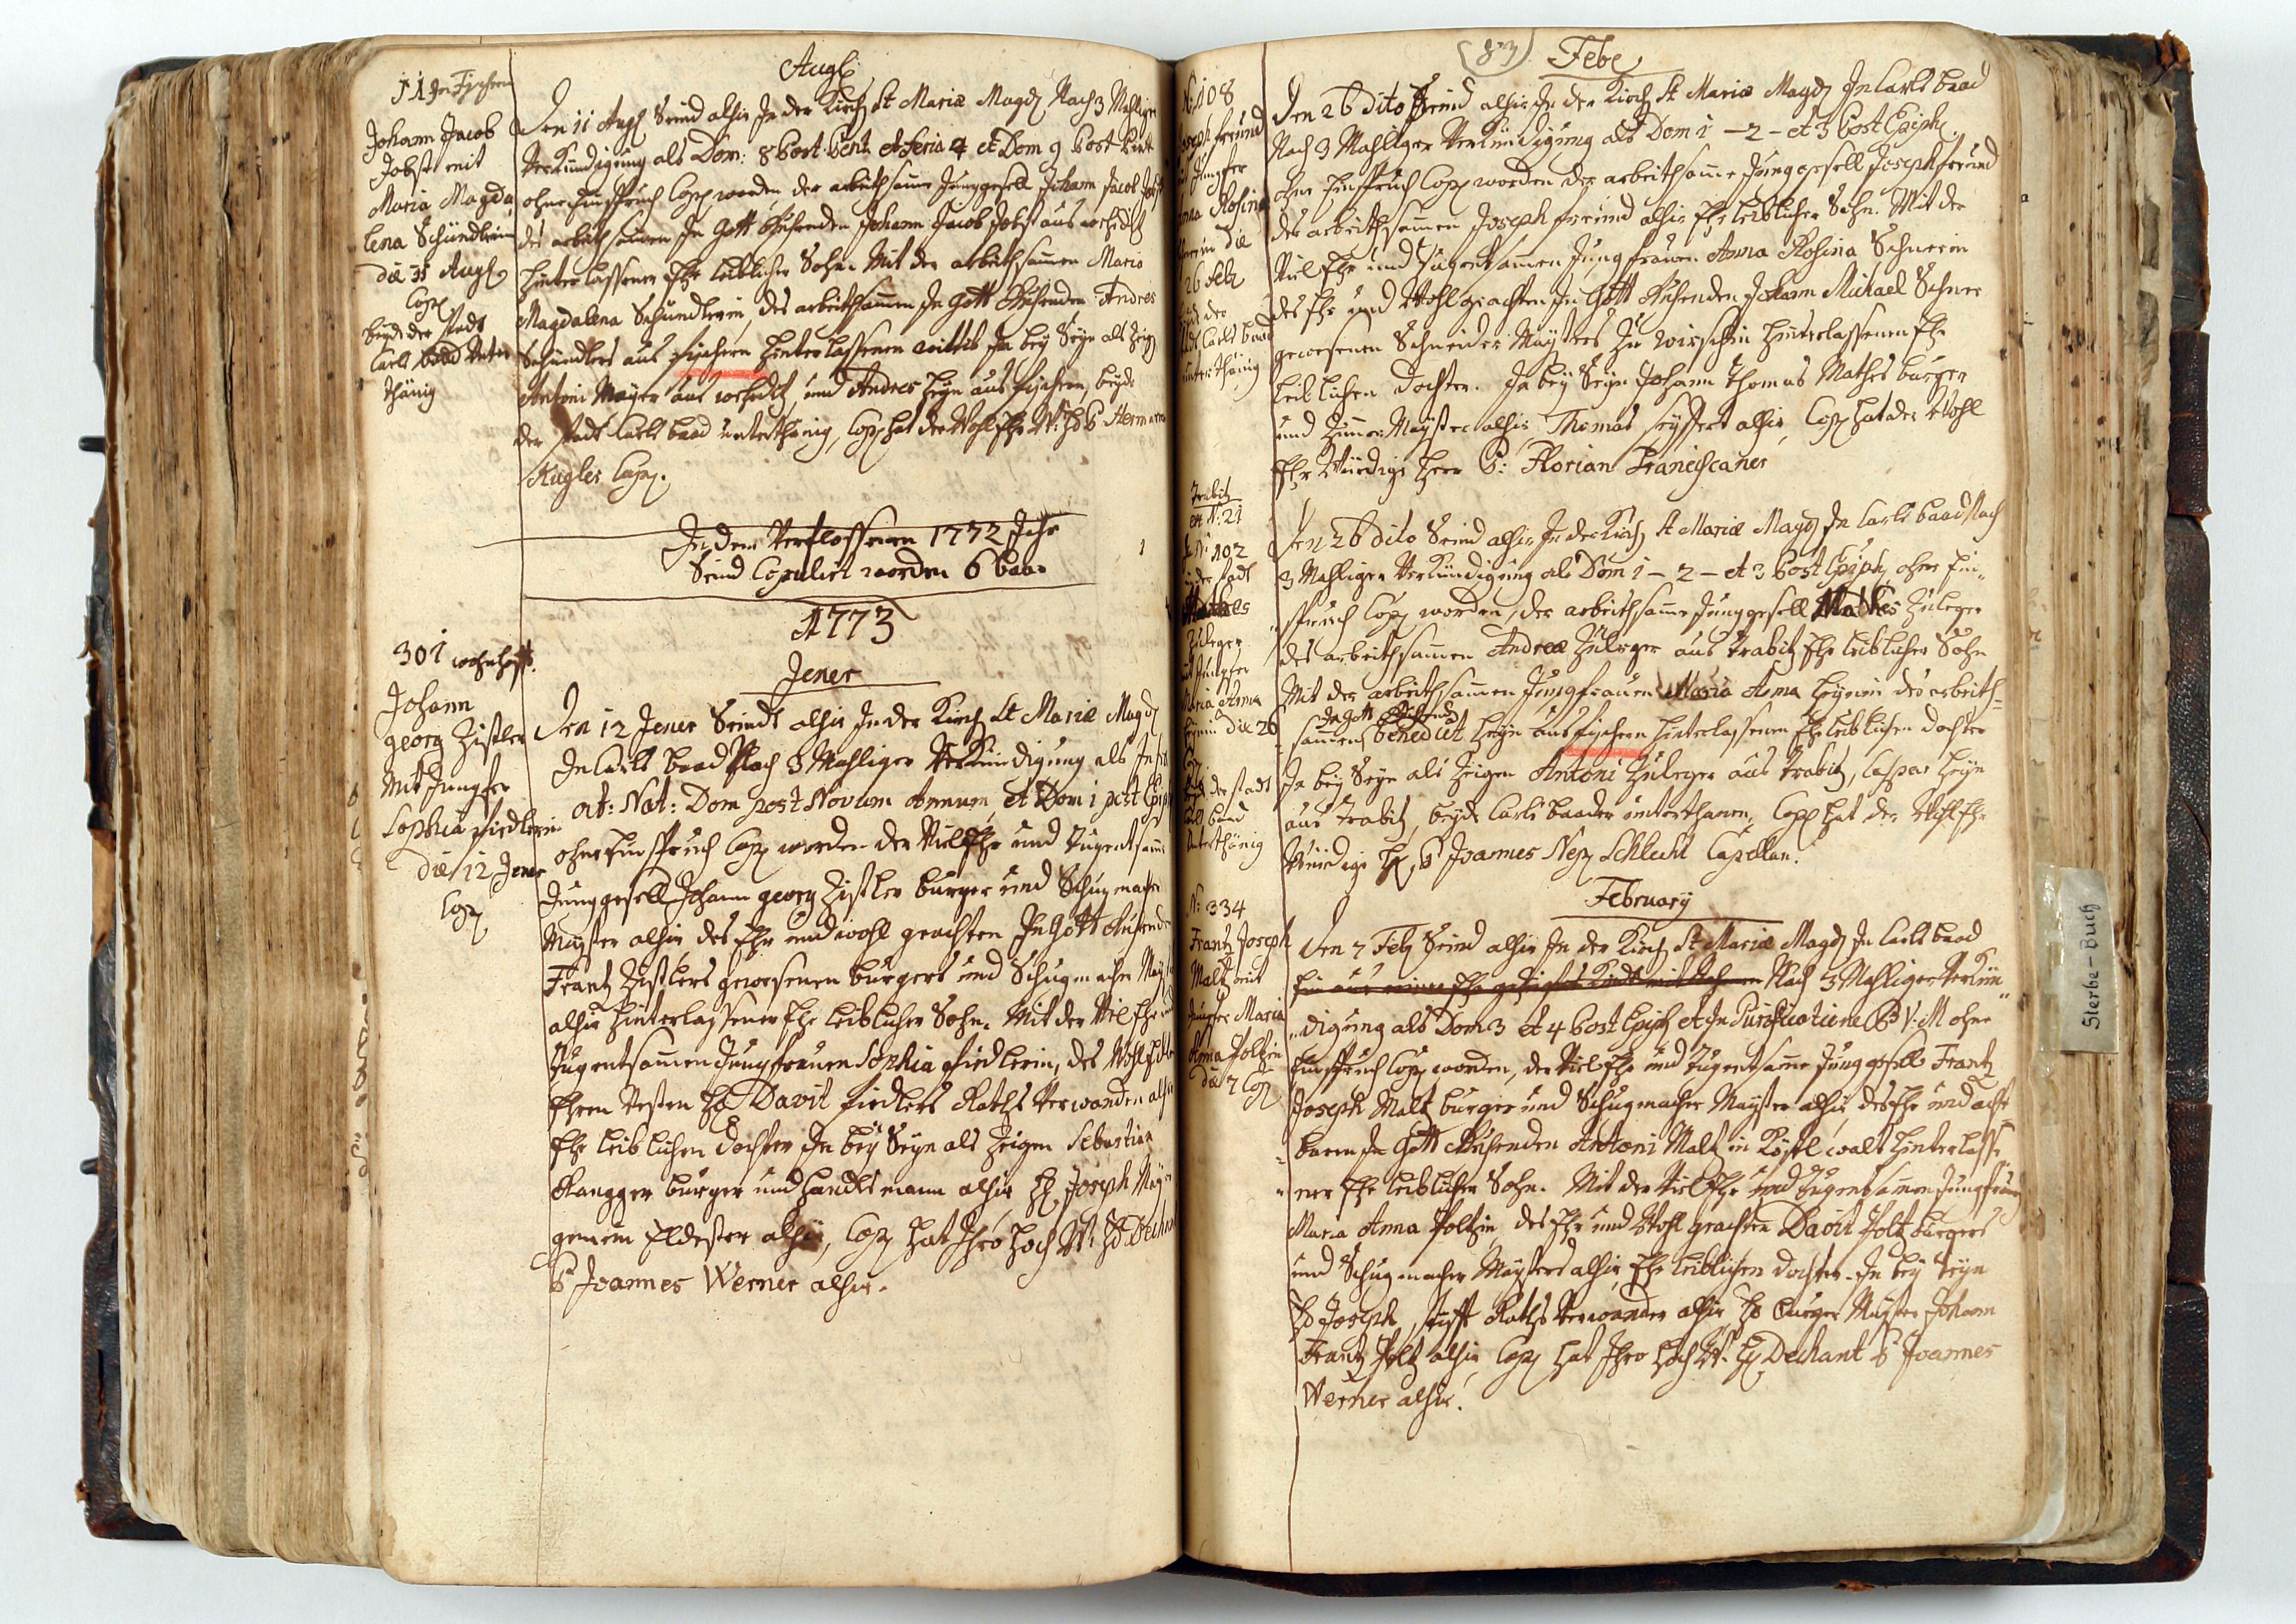 51 In Fischern
Johann Jacob
Jobst mit
Maria Magda
lena Schündlerin
die 11 Augl
Cop
beyde der stadt
Carls baad Unter
thänig
Augl
Den 11 Augl Seind alhir In der Kirch St Mariæ Magd Nach 3 Mahliger
Verkündigung als Dom: 8 Post Pent et Feria 4 et Dom 9 Post Pent
ohne Einspruch Cop worden der arbeithsame Junggesell Johann Jacob Jobst
des arbeithsamen In Gott Ruhenden Johann Jacob Jobst aus
Hinterlassener Ehr leiblicher Sohn Mit der arbeithsamen Maria
Magdalena Schündlerin, des arbeithsamen In Gott Ruhenden Andres
Schündlers aus Fischern Hinterlassenen wittib In bey Seyn als Zeig
Antoni Mayer aus und Andres Heyn aus Fischern, beyde
der stadt Carls baad unterthänig, Cop hat der Wohl Ehr W: H P Herman
Kugler Cap.
In dem Verflossenen 1772 Jahr
Seind Copulirt worden 6 baar
1773
Jener
301 wohnhafft.
Johann
georg Zistler
Mit Jungfer
Sophia Fiedlerin
die 12 Jener
Cop
Den 12 Jener Seindt alhir In der Kirch St Mariæ Magd
In Carls baad Nach 3 Mahliger Verkündigung als In
oct: Nat: Dom post Novum Annum et Dom 1 post Epiph
ohne Einspruch Cop worden der Viel Ehr und Tugentsame
Junggesell Johann georg Zistler burger und Schugmacher
Mayster alhir des Ehr und wohl geachten In Gott Ruhenden
Frantz Zistlers gewesenen burgers und Schugmacher Mayst
alhir Hinterlassener Ehr leiblicher Sohn. Mit der Viel Ehr und
Tugentsamen Jungfrauen Sophia Fiedlerin, des Wohl
Ehren Vesten H Davit Fiedlers Raths Verwanden alhir
Ehr leiblichen dochter In bey Seyn als Zeigen Sebastian
Rangger burger und Handlsmann alhir H Joseph May
gemein Eldester alhir, Cop hat Ihro Hoch W: H Dechant
P Joannes Werner alhir.
(83) Febe
N: 108
Joseph Freund
mit Jungfer
Anna Rosina
Schnerin die
26 Feb
beyde der
stadt Carls baad
unterthänig
Den 26 dito Seind alhir In der Kirch St Mariæ Magd In Carls baad
Nach 3 Mahliger Verkündigung als Dom 1 - 2 - et 3 Post Epiph.
ohne Einspruch Cop worden der arbeithsame Junggesell Joseph Freund
des arbeithsamen Joseph Freund alhir Ehr leiblicher Sohn. Mit der
Viel Ehr und Tugentsamen Jungfrauen Anna Rosina Schnerin
des Ehr und Wohl geachten In Gott Ruhenden Johann Michael Schner
gewesenen Schneider Maysters Zu Hinterlassenen Ehr
leiblichen dochter. In bey Seyn Johann Thomas Mathes burger
und Zimer Mayster alhir Thomas Seyffert alhir, Cop hat der Wohl
Ehr Würdige Herr P: Florian Franciscaner
Trabitz
N: 21
N: 102
in der stadt
Mathes
Zuleger
mit Jungfer
Maria Anna
Heynin die 26
Cop
beyde der stadt
Carls baad
Unterthänig
Den 26 dito Seind alhir In der Kirch St Mariæ Magd In Carls baad Nach
3 Mahliger Verkündigung als Dom 1 - 2 - et 3 Post Epiph ohne Ein
spruch Cop worden, der arbeithsame Junggesell Mathes Zuleger
des arbeithsamen Andreæ Zuleger aus Trabitz Ehr leiblicher Sohn
Mit der arbeithsamen Jungfrauen Maria Anna Heynin des arbeith
In Gott Ruhenden
samen Benedict Heyn aus Fischern Hinterlassenen Ehr leiblichen dochter
In bey Seyn als Zeigen Antoni Zuleger aus Trabitz, Caspar Heyn
aus Trabitz, beyde Carls baader unterthanen, Cop hat der Wohl Ehr
Würdige H P Joannes Nep Schlecht Capellan.
February
N: 334
Frantz Joseph
Maltz mit
Jungfer Maria
Anna Poltzin
die 7 Cop
Den 7 Feb Seind alhir In der Kirch St Mariæ Magd In Carls baad
Nach 3 Mahliger Verkün
digung als Dom 3 et 4 Post Epiph et In Purificatione B V: M ohne
Einspruch Cop worden, der Viel Ehr und Tugentsame Junggesell Frantz
Joseph Maltz burger und Schugmacher Mayster alhir, des Ehr und acht
baren In Gott Ruhenden Antoni Maltz in Hinterlasse
ner Ehr leiblicher Sohn. Mit der Viel Ehr und Tugentsamen Jungfrau
Maria Anna Poltzin des Ehr und Wohl geachten Davit Poltz burgers
und Schugmacher Maysters alhir Ehr leiblichen dochter. In bey Seyn
H Joseph Raths Verwander alhir H burger Mayster Johann
Frantz Poltz alhir Cop hat Ihro Hoch W. H Dechant P Joannes
Werner alhir.
Sterbe-Buch